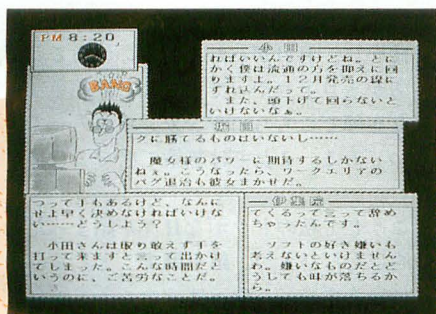 PM 8:20
BANG
小田
ればいいんですけどね。とに
かく僕は流通の方を抑えに回
りますよ。12月発売の線に
ずれ込んだって。
また、頭下げて回らないと
いけないなぁ。
クに勝てるものはいないし……
魔女様のパワーに期待するしかない
ねぇ。こうなったら、ワークエリアの
バグ退治も彼女まかせだ。
つって手もあるけど、なんに
せよ早く決めなければいけな
い……どうしよう?
小田さんは取り敢えず手を
打って来ますと言って出かけ
てしまった。こんな時間だと
いうのに、ご苦労なことだ。
伊集院
てくるって言って辞め
ちゃったんです。
ソフトの好き嫌いも
考えないといけません
わ。嫌いなものだとど
うしても味が落ちるか
ら。